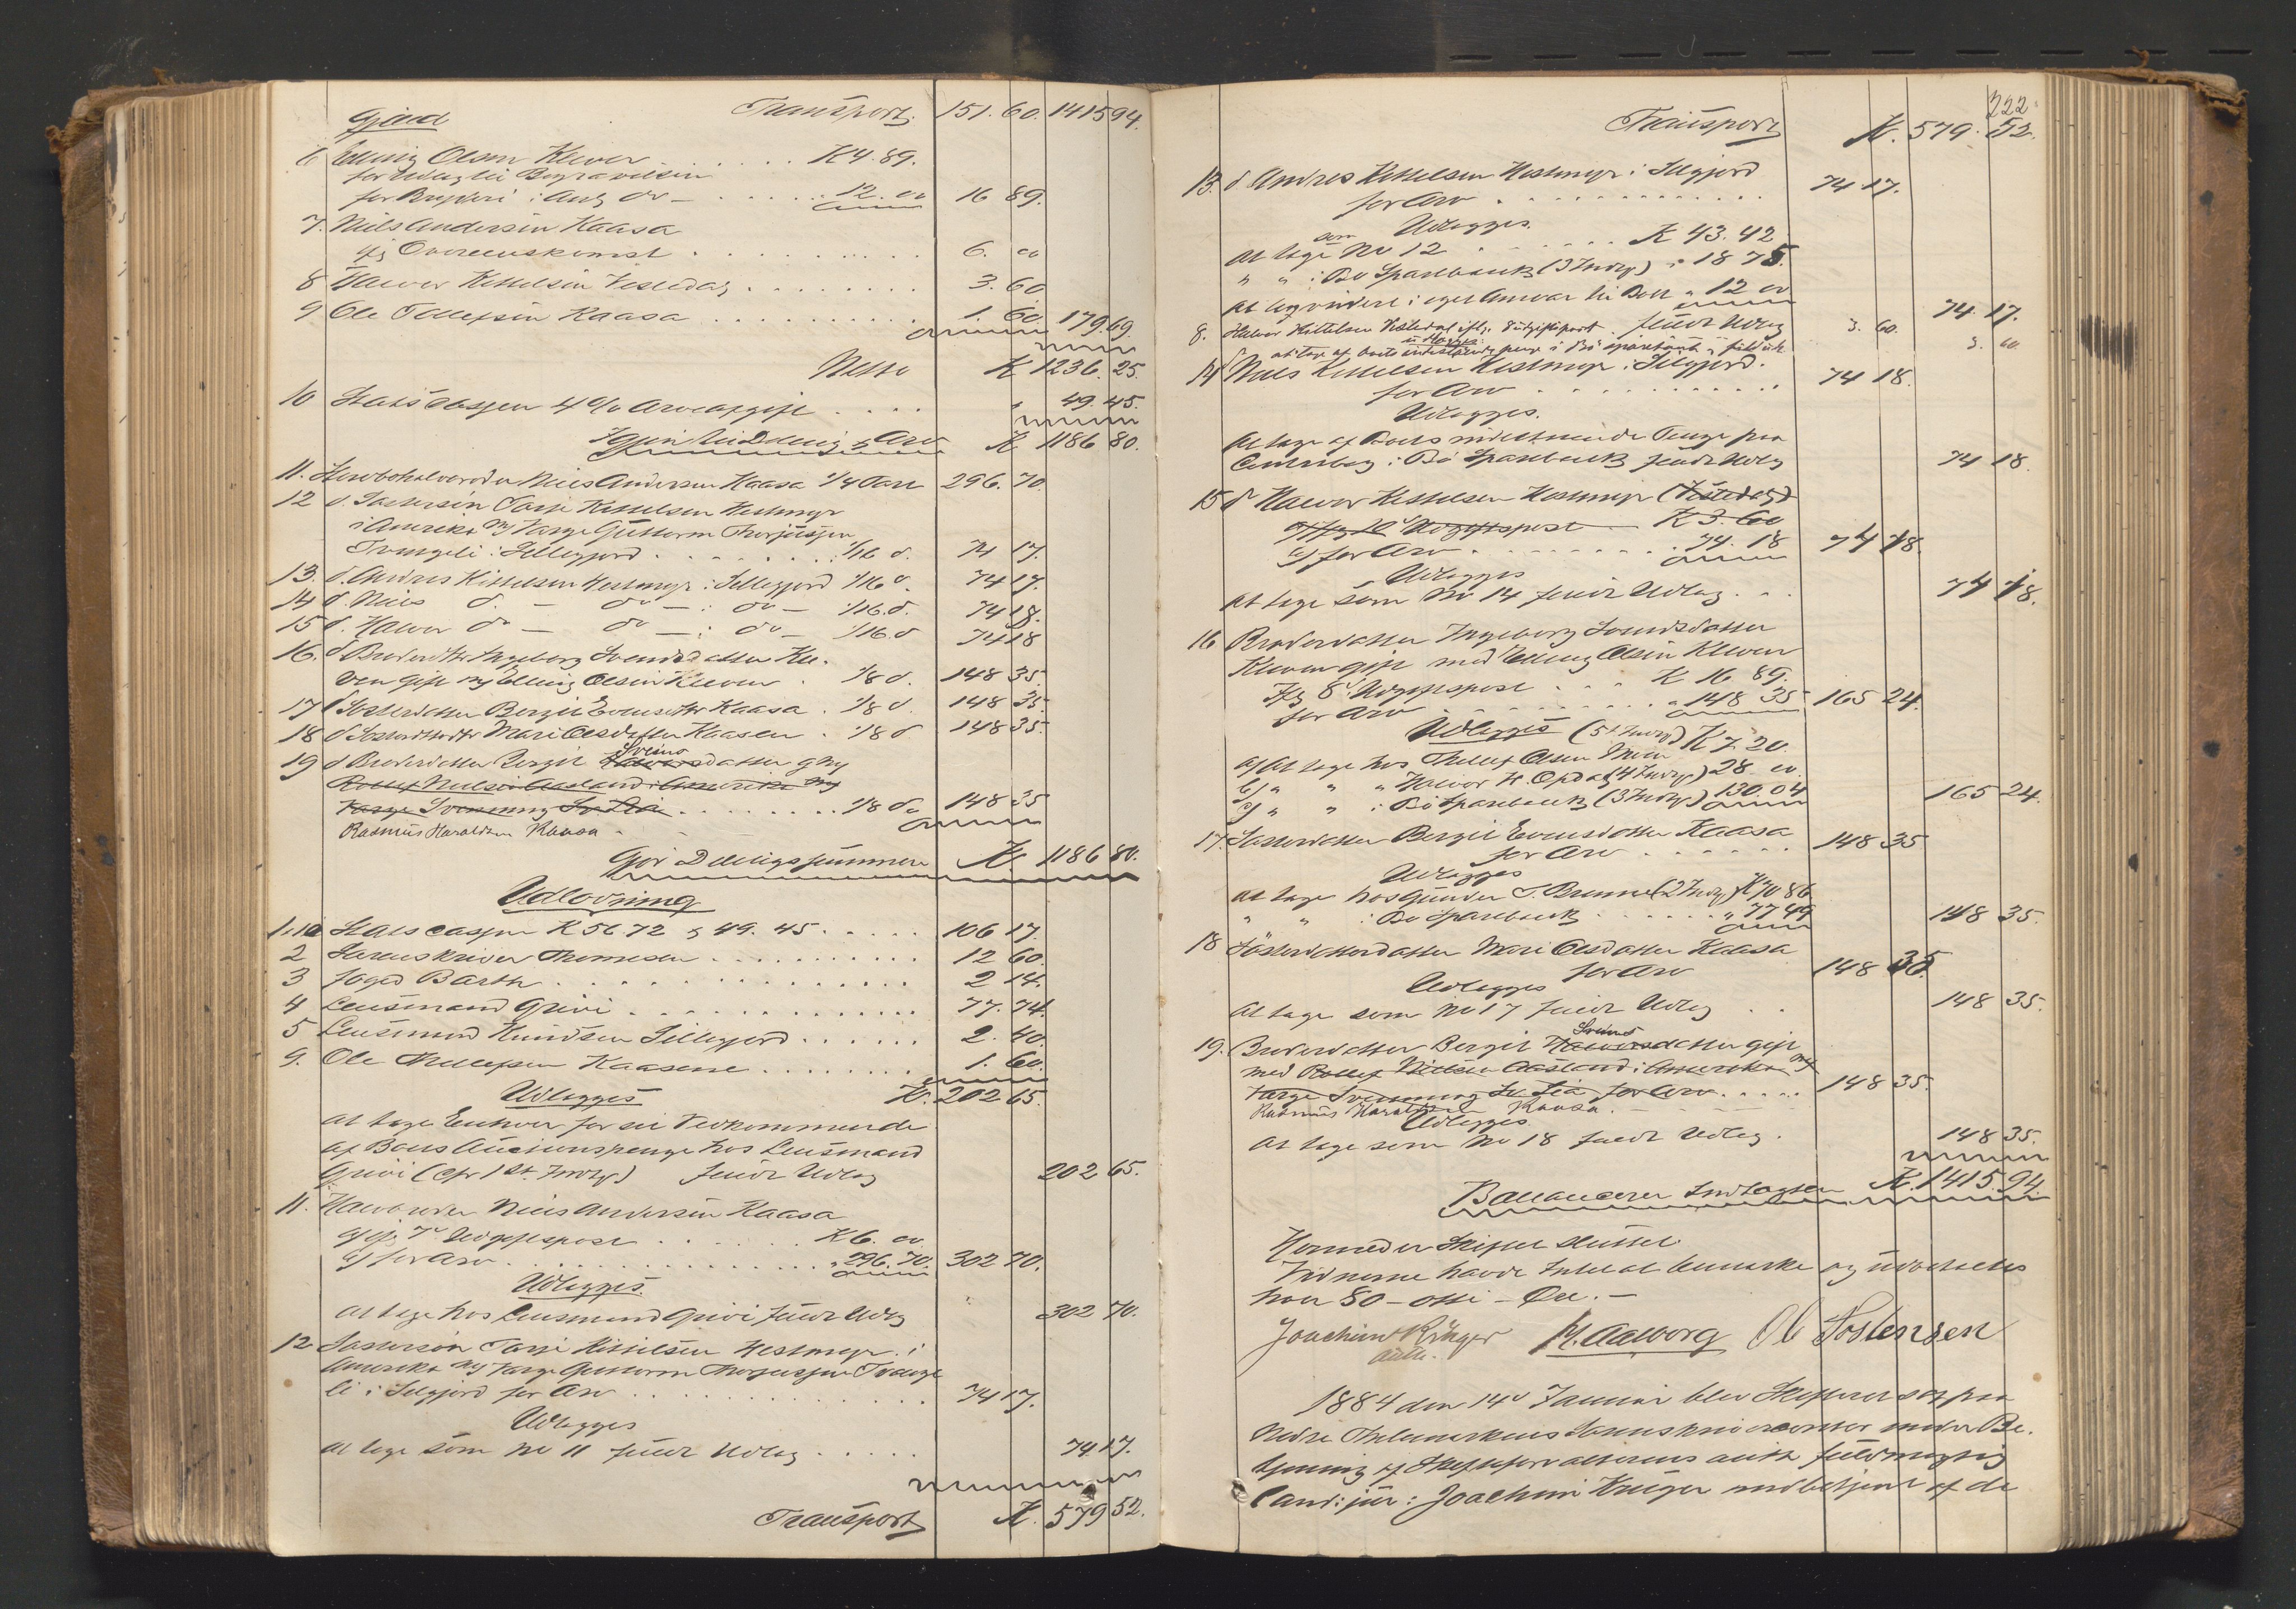 Gjæld Transport 151. 60. 1415 94.
6 Elling Olsen Kleven . . . . . . K 4. 89.
for Udlæg til Begravelsen
for Bryderi i Anl do — . . . . . 12. 00 16 89.
7. Niels Andersen Kaasa
Overeenskomst . . . . . . . . . 6. 00
8 Halvor Kittelsen Vesledal . . . . . . . 3. 60
9 Ole Tollefsen Kaasa . . . . . . . . . 1. 60. 179. 69.
Netto K 1236. 25.
10 Statscassen 4 % Arveafgift . . . . " 49. 45.
Igjen til Deling Arv K 1186 80.
11. Hovedhalvbroder Niels Andersen Kaasa 1/4 Part 296. 70.
12 d. Søstersøn Tarje Kittelsen Hestmyr
i Amerika Verge Guttorm Thorjussen
i Sillegjord . . . . . . . 1/16 d. 74 17.
13. d. Andres Kittelsen Hestmyr i Sillegjord 1/16 d. 74 17.
14 d. Niels d. — do — : do — 1/16. d. 74 18.
15 d. Halvor do — do — : do — 1/16. d 74 18
16. d Broderdtr Ingeborg Svendsdatter Kle-
ven gift m/ Elling Olsen Kleven . 1/8 d. 148 35.
17 d Søsterdatter Bergit Evensdtr Kaasa . 1/8 d. 148 35.
18 d Søsterdtrdtr Mari Olsdatter Kaasen . 1/8 d 148 35.
19 d Broderdatter Bergit Halvorsdatter g m/
Sveins
Rollef Nielsen Aasland i Amerika m/
Verge Svenning . . . . . . . 1/8 do 148 35
Rasmus Haraldsen Kaasa.
Gjør Delingssummen K. 1186 80.
Udlodning
1. 10 Statscassen K 56 72 & 49. 45. . . . . 106 17.
2 Sorenskriver Thomesen . . . . . . . . . . 12 60.
3 Foged Barth . . . . . . . . . . . . . 2 14.
4 Lensmand Grivi . . . . . . . . . . . 77. 74.
5 Lensmand Knudsen Sillegjord . . . . . . 2. 40.
9. Ole Thellefsen Kaasene . . . . . . . . 1. 60.
Udlægges K. 202 65.
At tage Enhver for sit Vedkommende
af Boets Auctionspenge hos Lensmand
Grivi (cfr 1st. Indtgt) fuldt Udlæg 202 65.
11. Halvbroder Niels Andersen Kaasa
a) 7de Udgiftspost . . . . . . K 6. 00
b) for Arv . . . . . . . . . . . . " 296. 70. 302 70.
Udlægges.
At tage hos Lensmand Grivi fuldt Udlæg 302 70.
12 Søstersøn Tarje Kittelsen Hestmyr i
Amerika m/ Verge Guttorm Thorjussen
li i Selgjord for Arv . . . . . . . . . . . 74 17.
Udlægges
At tage som No 11 fuldt Udlæg . . . . . 74 17.
Transport K. 579 52.
222.
Transport K. 579. 52.
13. d Andres Kittelsen Hestmyr i Selgjord
for Arv . . . . . . . . . . . . 74 17.
Udlægges.
At tage som No 12 . . . . . . K 43. 42
" " i Bø Sparebank (3 Indtgt) " 18 75.
At i eget Ansvar til Boet " 12 00
fuldt Udlæg 74. 17.
8. Halvor Kittelsen Vesledal iflg. Udgiftspost. 3. 60.
Udlægges:
at tage af Boets indestaaende penge i Bø sparebank fuldt 3. 60
14 d Niels Kittelsen Hestmyr i Selgjord.
for Arv . . . . . . . . . . . . 74 18.
Udlægges.
At tage af Boets indestaaende Penge paa
i Bø Sparebank fuldt Udlæg 74 18.
15 d Halvor Kittelsen Hestmyr (Vesledal)
Udgiftspost K 3. 60
b) for Arv . . . . . . . . " 74. 18 74 18.
Udlægges
At tage som No 14 fuldt Udlæg . . . 74 18.
16 Broderdatter Ingeborg Svendsdatter
Kleven gift med Elling Olsen Kleven
Iflg 6 Udgiftspost . . . K 16 89.
for Arv . . . . . . . . " 148 35 165 24.
Udlægges (5te Indtgt) K 7. 20.
a) At tage hos Thellef Olsen
b) " " " Halvor H. Opdal (4 Indtgt) 28 00.
c) " " " i Bø Sparebank (3 Indtgt) 130. 04 165 24.
17. Søsterdatter Bergit Evensdatter Kaasa
for Arv . . . . . . 148 35
Udlægges
At tage hos Gunder (2 Indtgt) K 70 86
" " i Bø Sparebank . . . . . " 77 49 148 35.
18 Søsterdatterdatter Mari Olsdatter Kaasa
for Arv 148 35.
Udlægges
At tage som No 17 fuldt Udlæg . . 148 35.
19. Broderdatter Bergit Halvorsdatter gift
Sveins
med Rollef Nielsen Aasland i Amerika m/
Verge Svenning for Arv . . . . . 148 35.
Rasmus Haraldsen Kaasa.
Udlægges.
At tage som No 18 fuldt Udlæg. 148 35.
Ballancerer Indtægten K. 1415. 94.
Hermed er Skiftet sluttet.
Vidnerne havde Intet at bemærke og udbetaltes
hver 80 - otti - Øre. —
Joachim Krüger M. Aalborg Ol Tostensen
auth.
1884 den 14de Januar blev Skifteret sat paa
Nedre Thelemarkens Sorenskrivercontor under Be-
tjening af Skifteforvalterens auth fuldmægtig
Cand: jur: Joachim Krüger medbetjent af de